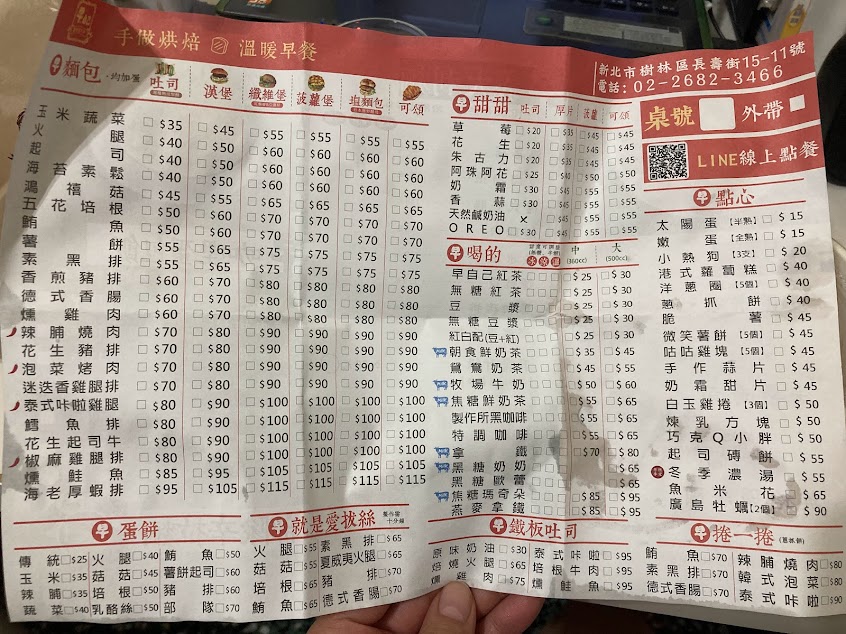 早起
手做烘焙 溫暖早餐
新北市樹林區長壽街15-11號
電話：02-2682-3466
桌號 外帶
LINE線上點餐
早 麵包 - 均加蛋 吐司 漢堡 纖維堡 菠蘿堡 坦麵包 可頌
玉米蔬菜 $35 $45 $55 $55 $55 $55
火腿 $40 $50 $60 $60 $60 $60
起司 $40 $50 $60 $60 $60 $60
海苔素鬆 $40 $50 $60 $60 $60 $60
鴻禧菇 $45 $55 $65 $65 $65 $65
五花培根 $50 $60 $70 $70 $70 $70
鮪魚 $50 $60 $70 $70 $70 $70
薯餅 $55 $65 $75 $75 $75 $75
素黑排 $55 $65 $75 $75 $75 $75
香煎豬排 $60 $70 $80 $80 $80 $80
德式香腸 $60 $70 $80 $80 $80 $80
燻雞肉 $60 $70 $80 $80 $80 $80
辣脯燒肉 $70 $80 $90 $90 $90 $90
花生豬排 $70 $80 $90 $90 $90 $90
泡菜烤肉 $70 $80 $90 $90 $90 $90
迷迭香雞腿排 $70 $80 $90 $90 $90 $90
泰式咔啦雞腿 $80 $90 $100 $100 $100 $100
鱈魚排 $80 $90 $100 $100 $100 $100
花生起司牛 $80 $90 $100 $100 $100 $100
椒麻雞腿排 $80 $90 $100 $100 $100 $100
燻鮭魚 $85 $95 $105 $105 $105 $105
海老厚蝦排 $95 $105 $115 $115 $115 $115
早 甜甜 吐司 厚片 菠蘿 可頌
草莓 $20 $35 $45 $45
花生 $20 $35 $45 $45
朱古力 $20 $35 $45 $45
阿珠阿花 $25 $40 $50 $50
奶霜 $30 $45 $55 $55
香蒜 $30 $45 $55 $55
天然鹹奶油 × $45 $55 $55
OREO $30 $45 $55 $55
早 喝的 冰 溫 中 (360cc) 大 (500cc)
早自己紅茶 $25 $30
無糖紅茶 $25 $30
豆漿 $25 $30
無糖豆漿 $25 $30
紅白配(豆+紅) $25 $30
朝食鮮奶茶 $35 $45
鴛鴦奶茶 $45 $55
牧場牛奶 $50 $60
焦糖鮮奶茶 $55 $65
製作所黑咖啡 $55 $65
特調咖啡 $55 $65
拿鐵 $70 $80
黑糖奶奶 $65
黑糖歐蕾 $65
焦糖瑪奇朵 $85 $95
燕麥拿鐵 $85 $95
早 點心
太陽蛋【半熟】 $15
嫩蛋【全熟】 $15
小熱狗【3支】 $20
港式蘿蔔糕 $40
洋蔥圈【5個】 $40
蔥抓餅 $40
脆薯 $45
微笑薯餅【5個】 $45
咕咕雞塊【5個】 $45
手作蒜片 $45
奶霜甜片 $45
白玉雞捲【3個】 $50
煉乳方塊 $50
巧克Q小胖 $50
起司磚餅 $55
冬季濃湯 $55
魚米花 $65
廣島牡蠣【2個】 $90
早 蛋餅
傳統 $25 火腿 $40 鮪魚 $50
玉米 $35 菇菇 $45 薯餅起司 $60
辣脯 $35 培根 $50 豬排 $60
蔬菜 $40 乳酪絲 $50 部隊 $70
早 就是愛拔絲 製作需十分鐘
火腿 $55 素黑排 $65
菇菇 $55 夏威夷火腿 $65
培根 $65 豬排 $70
鮪魚 $65 德式香腸 $70
早 鐵板吐司
原味奶油 $30 泰式咔啦 $95
培燒火腿 $65 培根牛肉 $95
燻雞肉 $75 燻鮭魚 $95
早 捲一捲 (蔥抓餅)
鮪魚 $70 辣脯燒肉 $80
素黑排 $70 韓式泡菜 $80
德式香腸 $70 泰式咔啦 $90